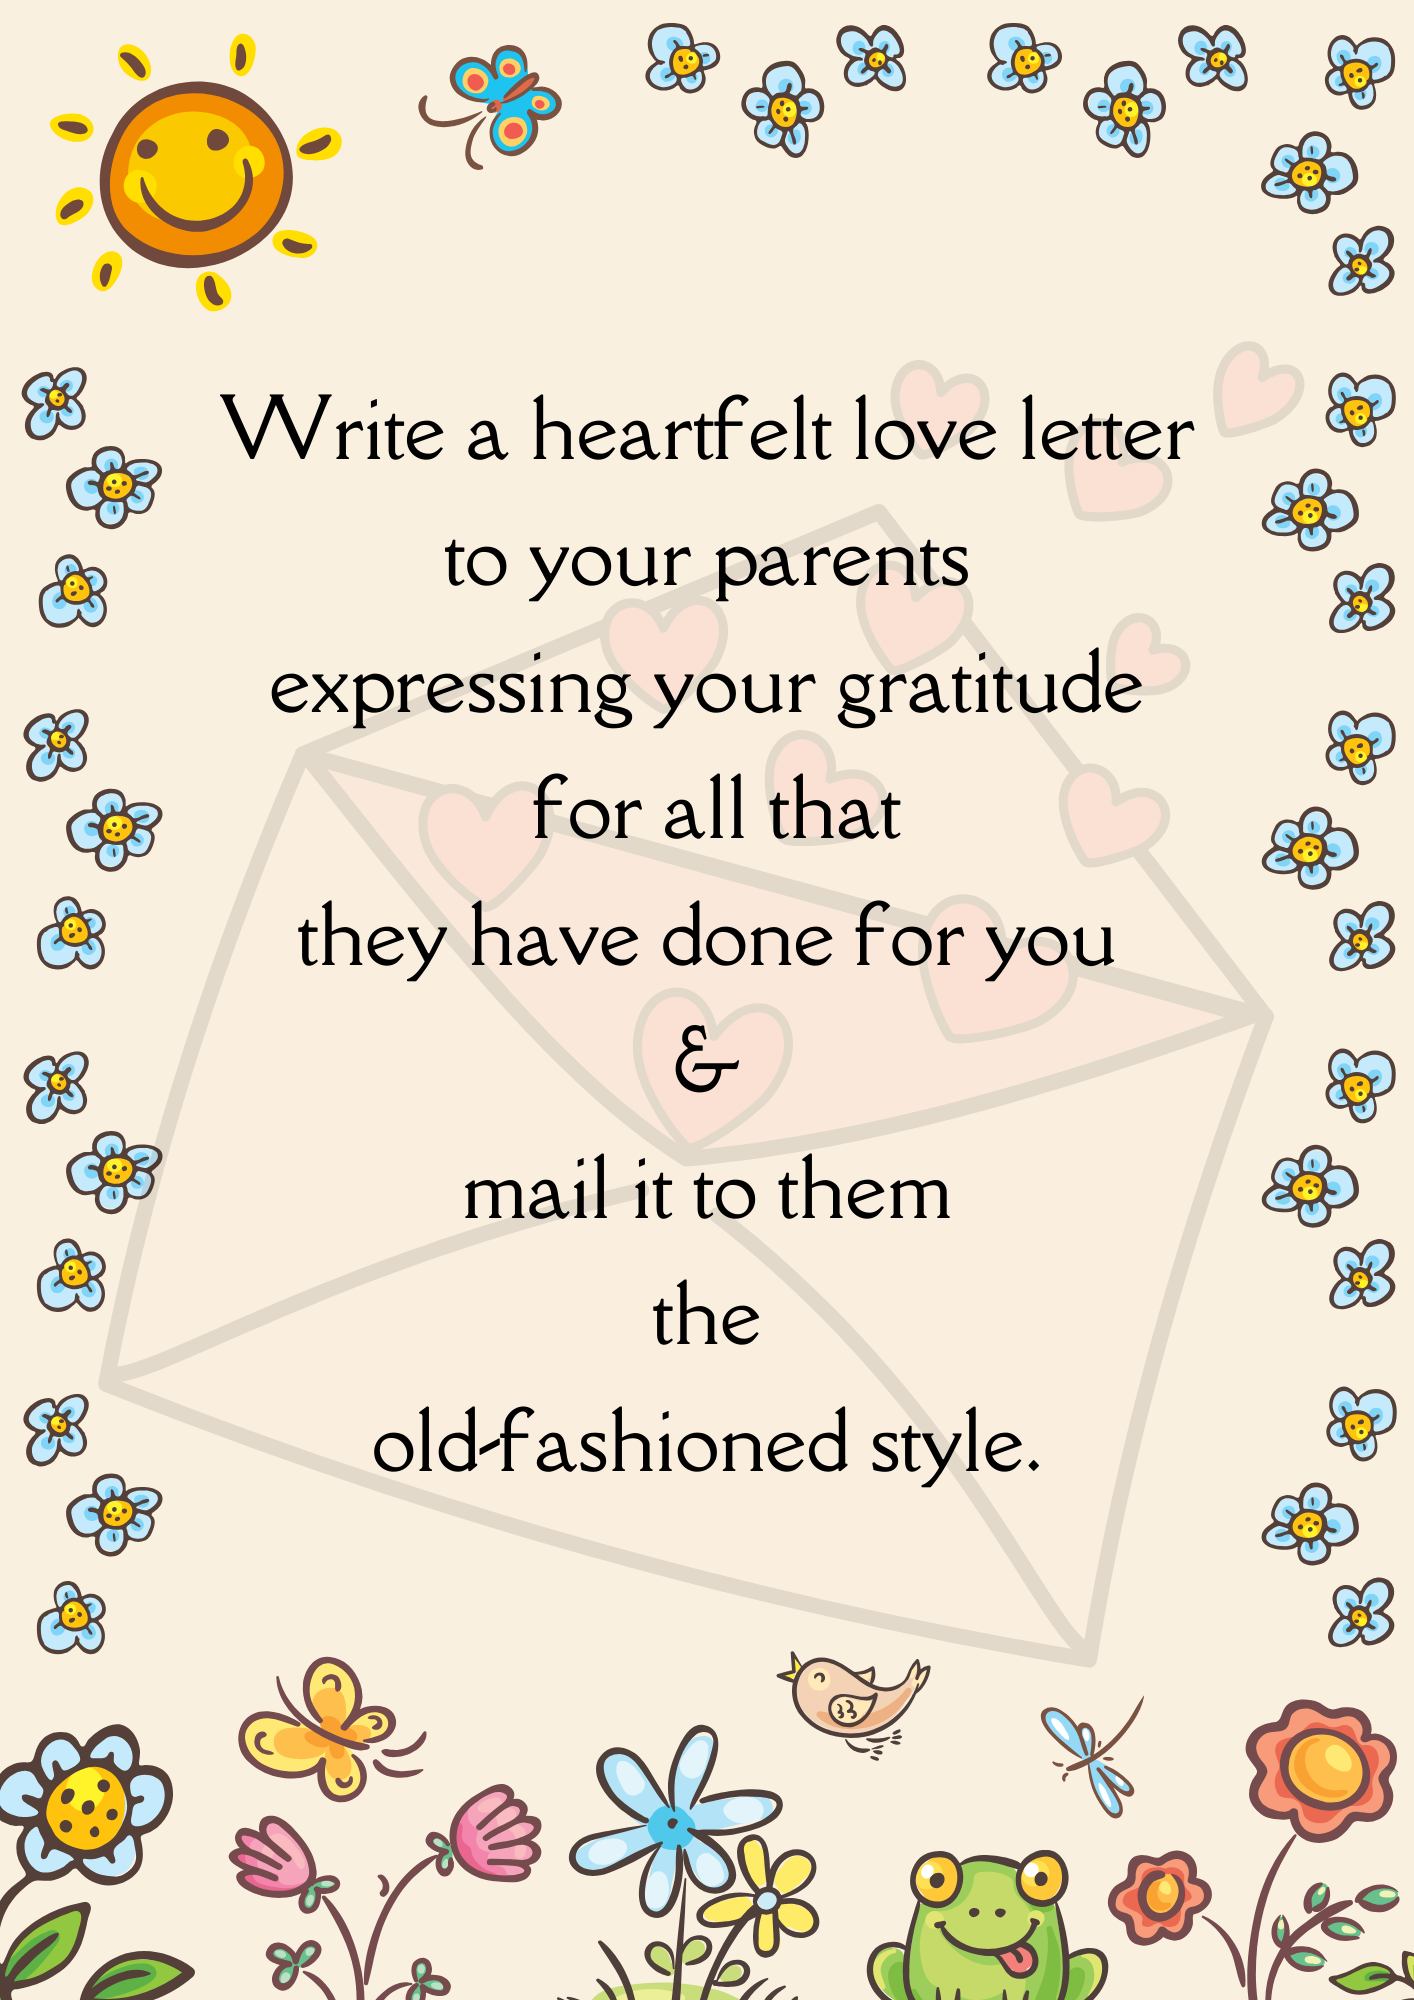 Write a heartfelt love letter
to your parents
expressing your gratitude
for all that
they have done for you
&
mail it to them
the
old-fashioned style.